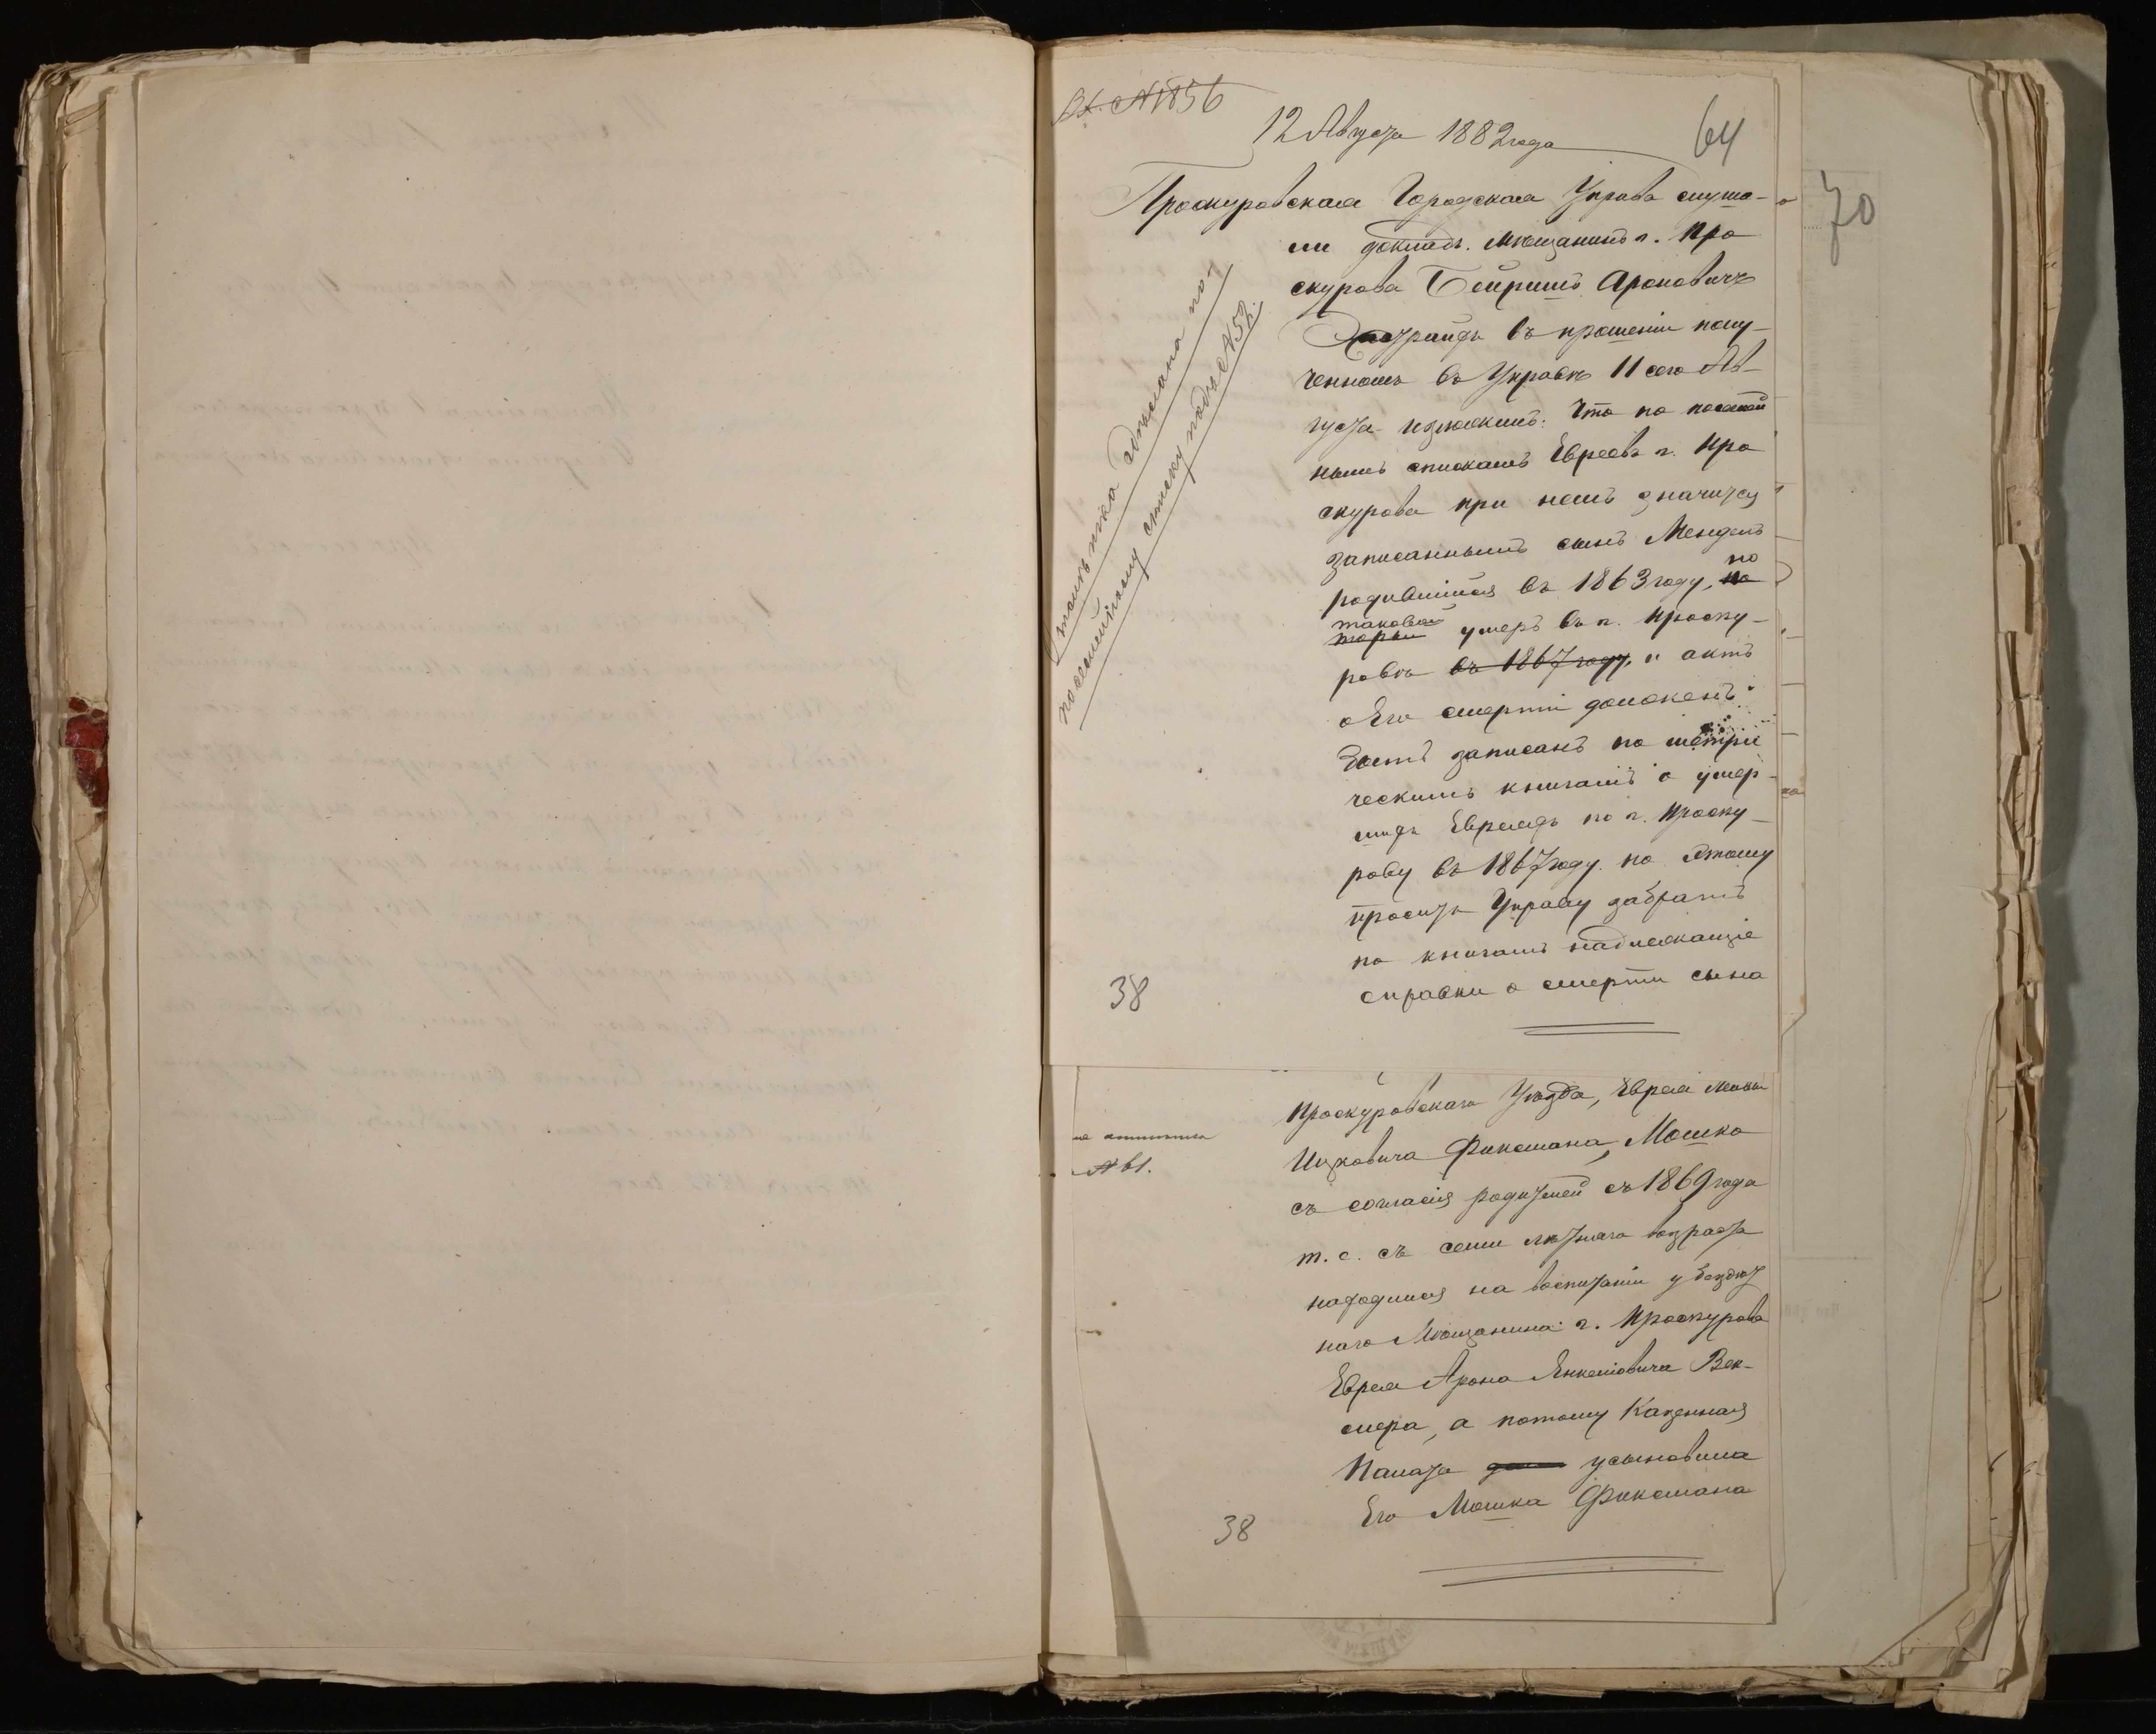 Вх. №1856
12 Августа 1882 года
64
70
Проскуровская Городская Управа слуша-
ли докладъ. мѣщанинъ г. Про
скурова Бейришъ Ароновичъ
въ прошеніи полу-
ченномъ въ Управѣ 11 сего Ав-
густа изложилъ: Что по посемей
нымъ спискамъ Евреевъ г. Про
скурова при немъ значится
записаннымъ сынъ Мендель
родившійся въ 1863 году, но
таковой умеръ въ г. Проску-
ровѣ въ 1867 году, и актъ
о Его смерти долженъ
быть записанъ по метри
ческимъ книгамъ о умер-
шихъ Евреяхъ по г. Проску-
рову въ 1867 году. по этому
проситъ Управу забрать
по книгамъ надлежащіе
справки о смерти сына
38
отмѣтка сдѣлана по
посемейному списку подъ №52.
Проскуровскаго Уѣзда, Еврея
Ицковича Фиксмана, Мошко
съ согласія родителей съ 1869 года
т. е. съ семи лѣтняго возраста
находился на воспитаніи у бездѣт
наго Мѣщанина г. Проскурова
Еврея Арона Янкелевича Век-
слера, а потому Казенная
Палата усыновила
Его Мошка Фиксмана
№ 61.
38